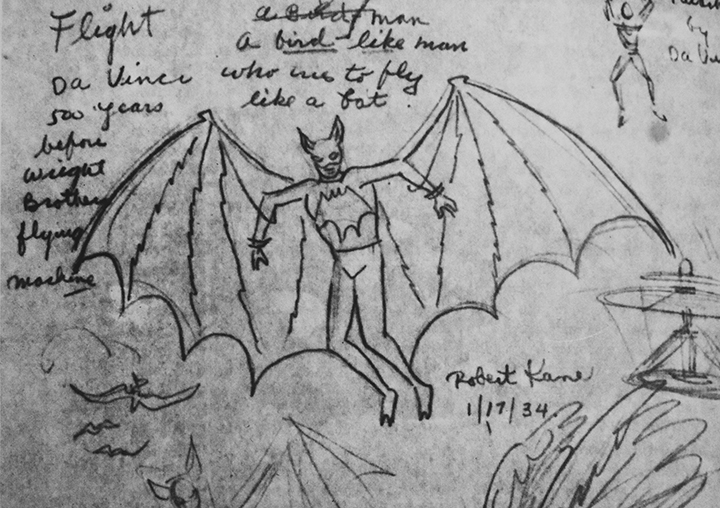 Flight
Da Vinci
500 years
before
wright
Brothers
flying
machine
man
A bird-like man
who uses to fly
like a bat.
by
Da Vi
Robert Kane
1/17/34.